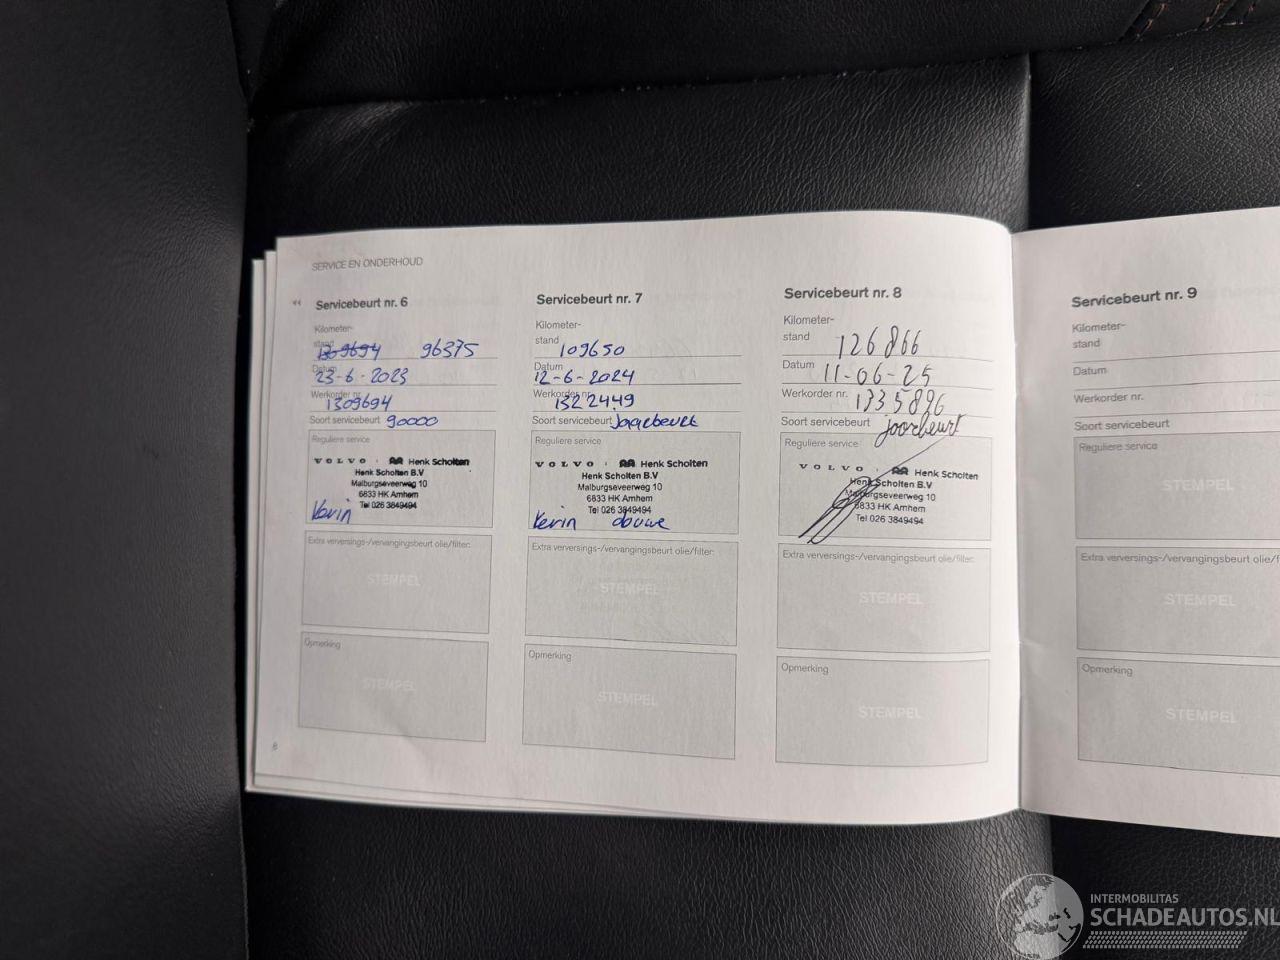 SERVICE EN ONDERHOUD
Servicebeurt nr. 6
Kilometer-
stand
1309694 96375
Datum
23-6-2023
Werkorder nr.
1309694
Soort servicebeurt 90000
Reguliere service
VOLVO Henk Scholten
Henk Scholten B.V
Malburgseveerweg 10
6833 HK Arnhem
Tel 026 3849494
Kevin
Extra verversings-/vervangingsbeurt olie/filter:
STEMPEL
Opmerking
STEMPEL
8
Servicebeurt nr. 7
Kilometer-
stand
109650
Datum
12-6-2024
Werkorder nr.
1322449
Soort servicebeurt Jaarbeurt
Reguliere service
VOLVO Henk Scholten
Henk Scholten B.V
Malburgseveerweg 10
6833 HK Arnhem
Tel 026 3849494
Kevin douwe
Extra verversings-/vervangingsbeurt olie/filter:
STEMPEL
Opmerking
STEMPEL
Servicebeurt nr. 8
Kilometer-
stand 126866
Datum 11-06-25
Werkorder nr. 1335896
Soort servicebeurt jaarbeurt
Reguliere service
VOLVO Henk Scholten
Henk Scholten B.V
Malburgseveerweg 10
6833 HK Arnhem
Tel 026 3849494
Extra verversings-/vervangingsbeurt olie/filter:
STEMPEL
Opmerking
STEMPEL
Servicebeurt nr. 9
Kilometer-
stand
Datum
Werkorder nr.
Soort servicebeurt
Reguliere service
STEMPEL
Extra verversings-/vervangingsbeurt olie/f
STEMPEL
Opmerking
STEMPEL
INTERMOBILITAS
SCHADEAUTOS.NL